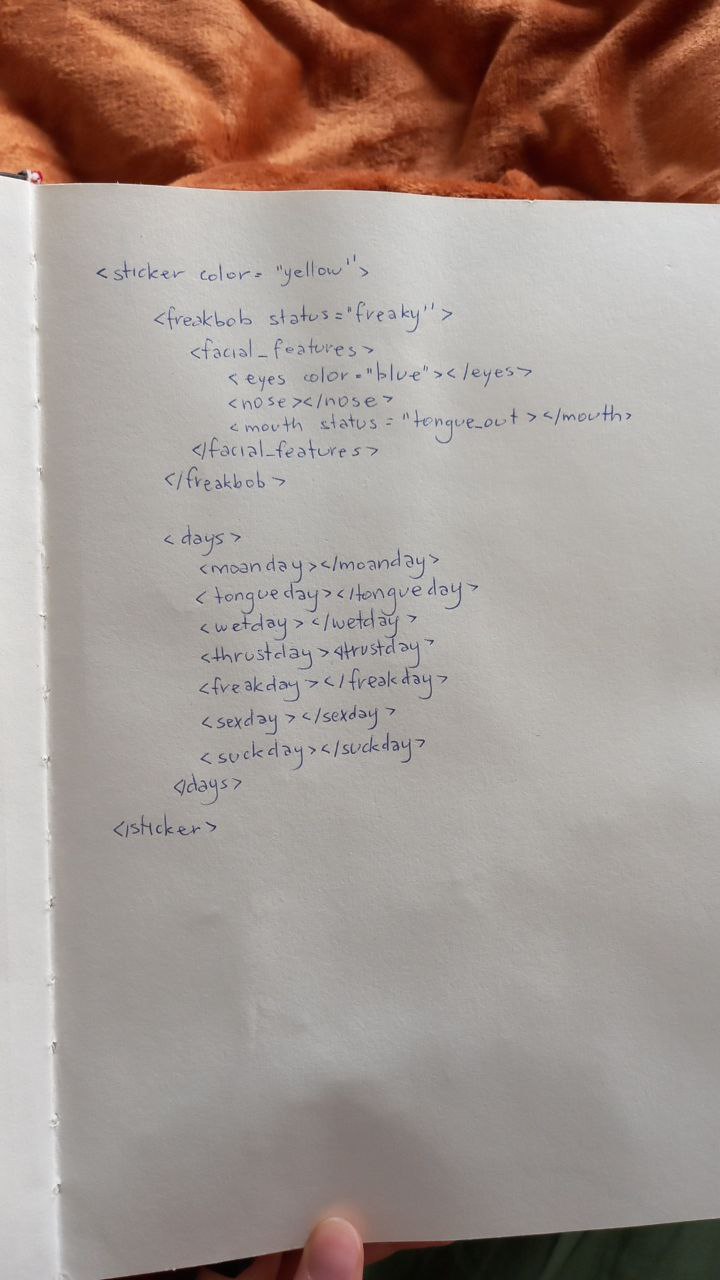 <sticker color="yellow">
<freakbob status="freaky">
<facial_features>
<eyes color="blue"></eyes>
<nose></nose>
<mouth status="tongue_out></mouth>
</facial_features>
</freakbob>
<days>
<moanday></moanday>
<tongueday></tongueday>
<wetday></wetday>
<thrustday></trustday>
<freakday></freakday>
<sexday></sexday>
<suckday></suckday>
</days>
</sticker>